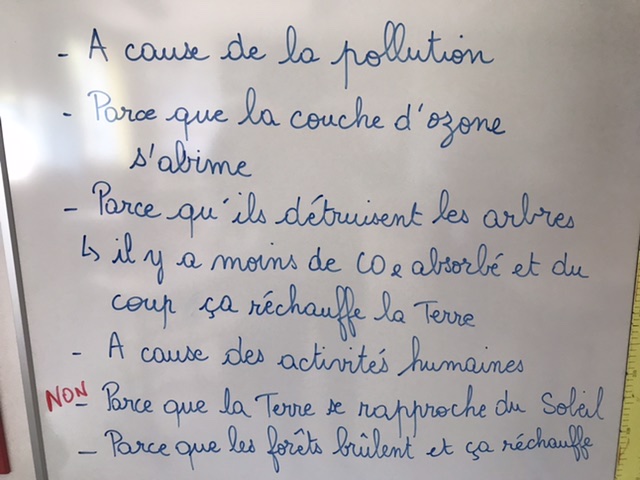 - A cause de la pollution
- Parce que la couche d'ozone
s'abime
- Parce qu'ils détruisent les arbres
↳ il y a moins de CO2 absorbé et du
coup ça réchauffe la Terre
- A cause des activités humaines
NON - Parce que la Terre se rapproche du Soleil
- Parce que les forêts brûlent et ça réchauffe